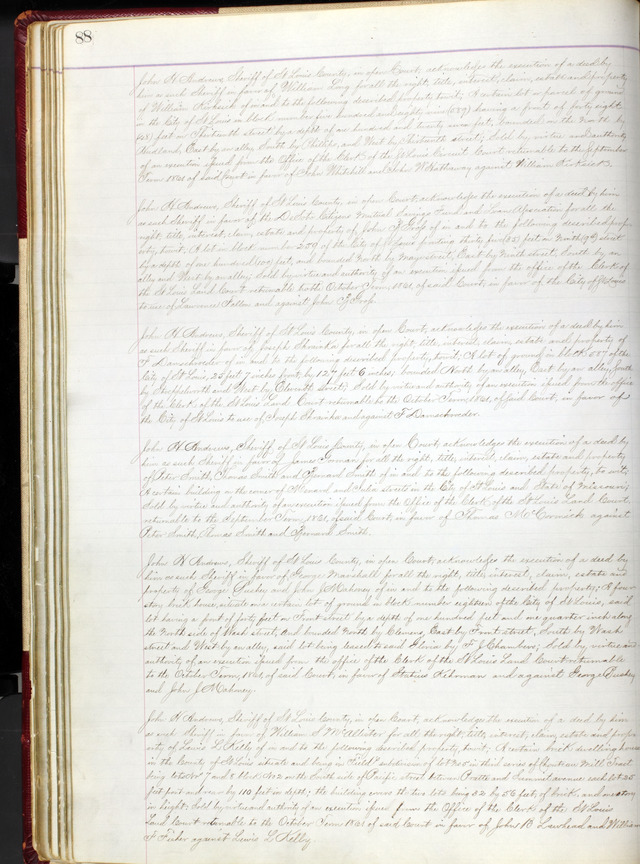 88
John H Andrews, Sheriff of St Louis County, in open Court, acknowledges the execution of a deed by
him as such Sheriff in favor of William Long for all the right, title, interest, claim, estate and property
of William of in and to the following described property, towit; A certain lot or parcel of ground
in the City of St Louis in block number five hundred and eighty nine (589) having a front of forty eight
(48) feet on Thirteenth street by a depth of one hundred and twenty feet, bounded on the North by
East by an alley, South by Phillips, and West by Thirteenth street; Sold by virtue and authority
of an execution issued from the Office of the Clerk of the St Louis Circuit Court returnable to the September
Term 1861 of said Court in favor of John Whitehill and John W Hathaway against William
John H Andrews, Sheriff of St Louis County, in open Court, acknowledges the execution of a deed by him
as such Sheriff in favor of the Citizens Mutual Savings Fund and Loan Association for all the
right, title, interest, claim, estate and property of John of in and to the following described prop
erty, towit; A lot in block number 259 of the City of St Louis fronting thirty two (32) feet on Ninth (9th) street
by a depth of one hundred feet, and bounded North by street, East by Ninth street, South by an
alley and West by an alley. Sold by virtue and authority of an execution issued from the office of the Clerk of
the St Louis Land Court returnable to the October Term, 1861, of said Court, in favor of the City of St Louis
to use of Lawrence Fallon and against John
John H Andrews, Sheriff of St Louis County, in open Court, acknowledges the execution of a deed by him
as such Sheriff in favor of Joseph for all the right, title, interest, claim, estate, and property of
F in and to the following described property, towit; A lot of ground in block 557 of the
City of St Louis, 25 feet 7 inches front, by 127 feet 6 inches; bounded North by an alley, East by an alley, South
by and West by Eleventh street; Sold by virtue and authority of an execution issued from the office
of the Clerk of the St Louis Land Court returnable to the October Term, 1861, of said Court, in favor of
the City of St Louis to use of Joseph and against F
John H Andrews, Sheriff of St Louis County, in open Court, acknowledges the execution of a deed by
him as such Sheriff in favor of James Gorman for all the right, title, interest, claim, estate and property
of Peter Smith, Thomas Smith and Bernard Smith of in and to the following described property, to wit;
A certain building on the corner of and streets in the City of St Louis and State of Missouri;
Sold by virtue and authority of an execution issued from the Office of the Clerk of the St Louis Land Court
returnable to the September Term, 1861, of said Court, in favor of Thomas McCormick against
Peter Smith, Thomas Smith and Bernard Smith.
John H Andrews, Sheriff of St Louis County, in open Court, acknowledges the execution of a deed by
him as such Sheriff in favor of George Marshall for all the right, title, interest, claim, estate and
property of George and John J Mahoney of in and to the following described property; A four
story brick house, situate on a certain lot of ground in block number eighteen of the City of St Louis, said
lot having a front of forty feet on Front street by a depth of one hundred feet and one quarter inch along
the North side of Wash street, and bounded North by Clemens, East by Front street, South by Wash
street and West by an alley, said lot being leased to said by F J Chambers; Sold by virtue and
authority of an execution issued from the office of the Clerk of the St Louis Land Court returnable
to the October Term, 1861, of said Court, in favor of and against George
and John J Mahoney.
John H Andrews, Sheriff of St Louis County, in open Court, acknowledges the execution of a deed by him
as such Sheriff in favor of William S McAllister for all the right, title, interest, claim, estate and prop
erty of Louis L Kelly of in and to the following described property, towit; A certain brick dwelling house
in the County of St Louis situate and being in Field's subdivision of lot No 5 in third series of Mill Tract
being lots No 7 and 8 block No 2 on the South side of Pacific street between Pratte and Summit avenue each lot 25
feet front and rear by 110 feet in depth; the building covers the two lots being 32 by 56 feet, of brick, and one story
in height; Sold by virtue and authority of an execution issued from the Office of the Clerk of the St Louis
Land Court returnable to the October Term 1861 of said Court in favor of John B Lawhead and William
F Fisher against Lewis L Kelly